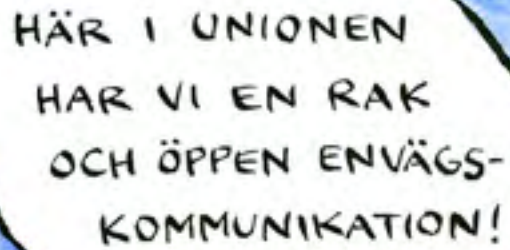 HÄR I UNIONEN
HAR VI EN RAK
OCH ÖPPEN ENVÄGS-
KOMMUNIKATION!